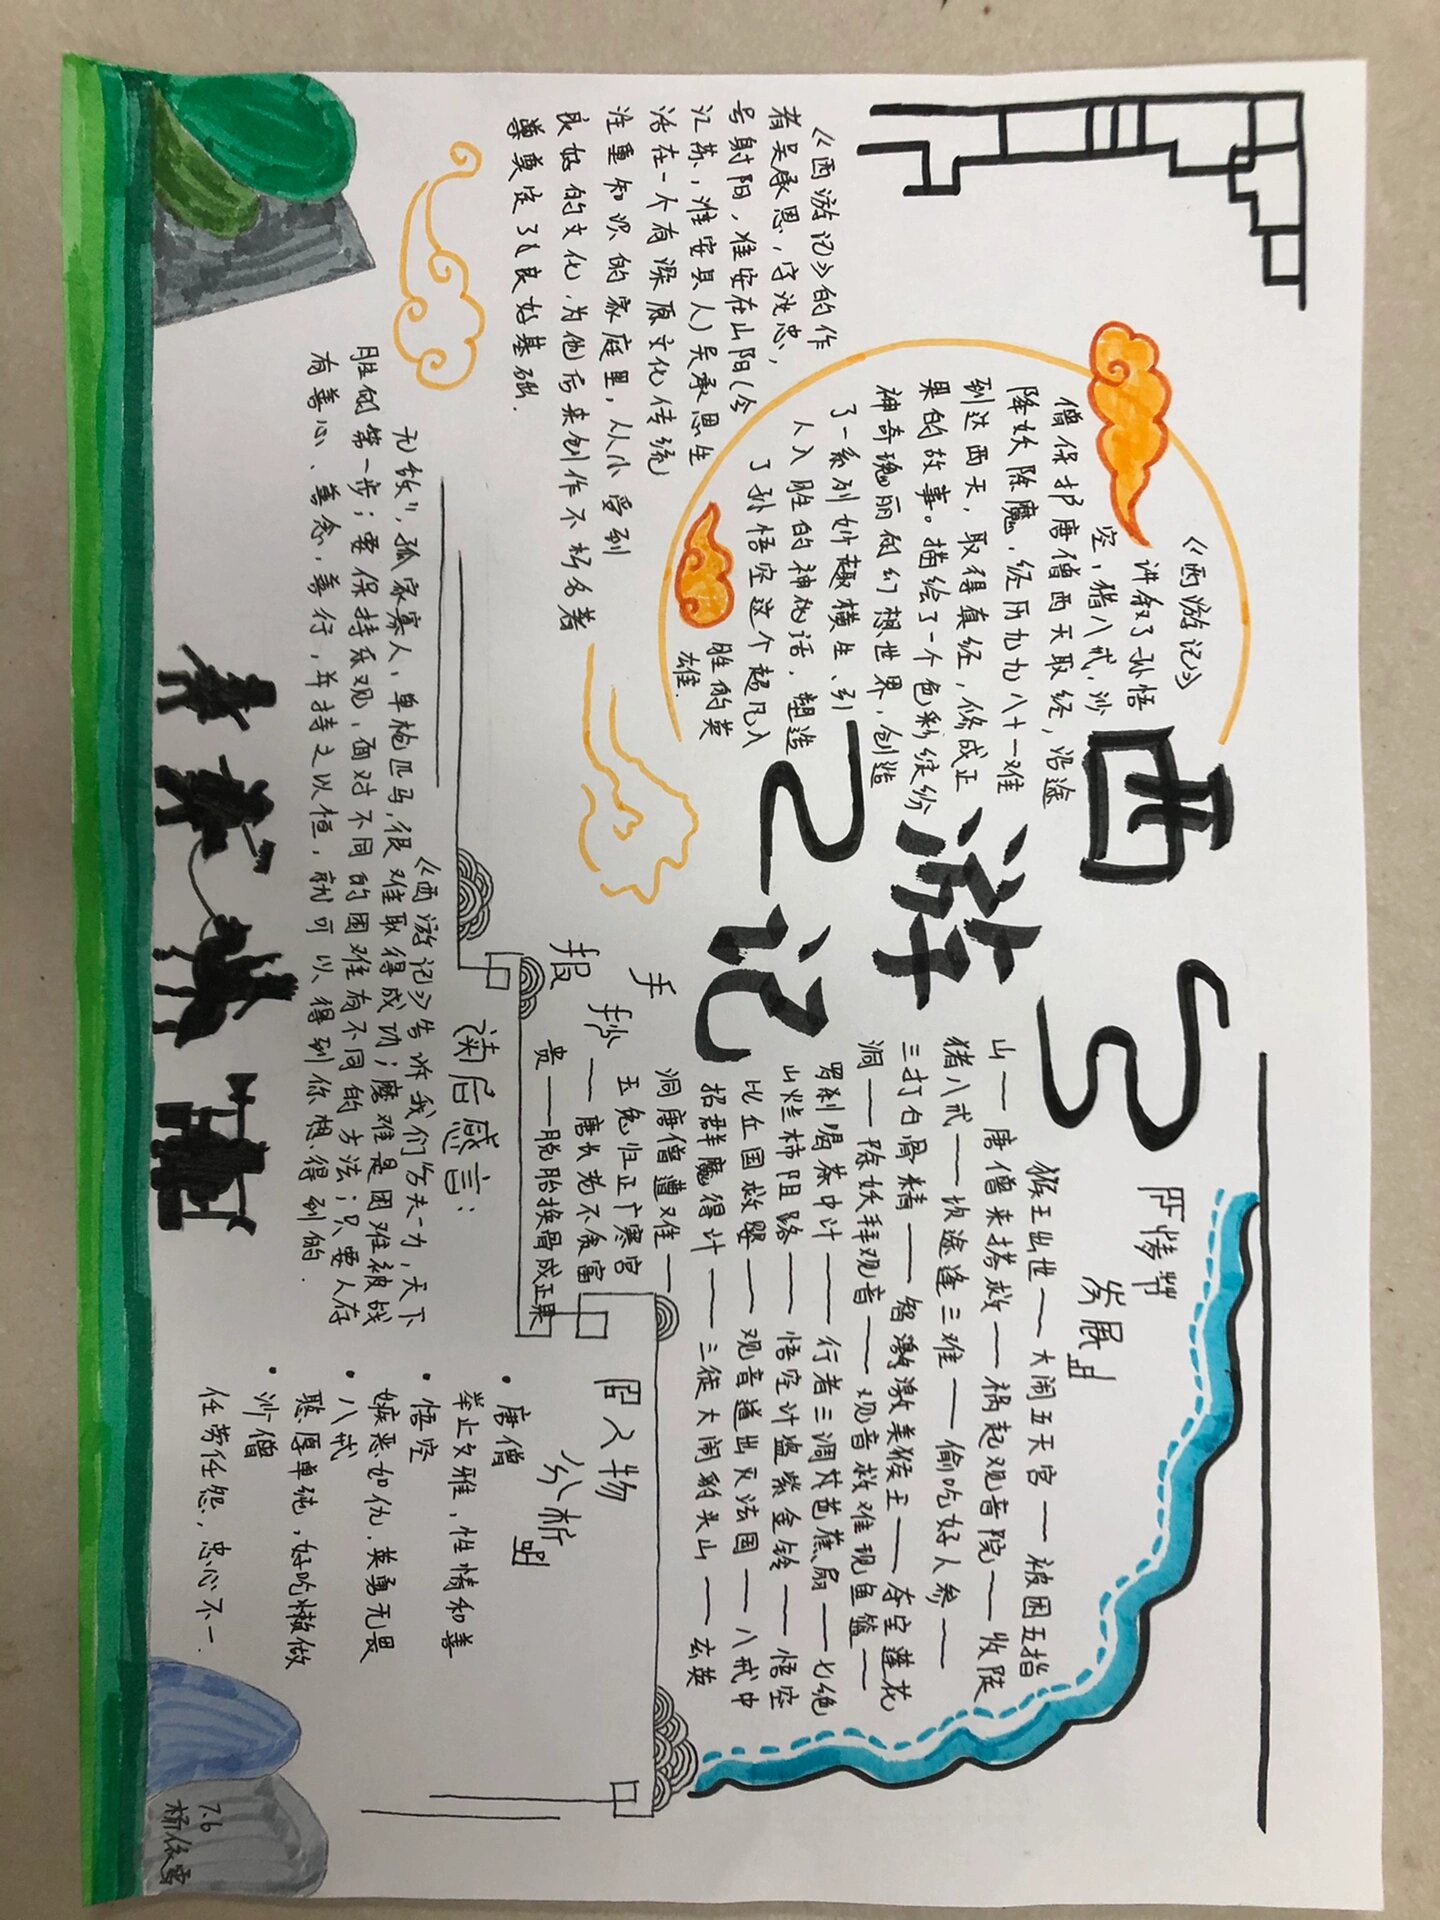 西游记
手抄报
《西游记》
讲叙了孙悟
空，猪八戒，沙
僧保护唐僧西天取经，沿途
降妖除魔，经历九九八十一难
到达西天，取得真经，修成正
果的故事。描绘了一个色彩缤纷
神奇瑰丽的幻想世界，创造
了一系列妙趣横生、引
人入胜的神话话，塑造
了孙悟空这个超凡入
胜的英
雄.
《西游记》的作
者吴承恩，字汝忠，
号射阳，淮安在山阳(今
江苏，淮安县人)吴承恩生
活在一个有深厚文化传统，
注重知识的家庭里，从小受到
良好的文化，为他后来创作不朽名著
奠定了良好基础.
情节
发展
猴王出世——大闹五天宫——被困五指
山——唐僧来搭救——祸起观音院——收陡
猪八戒——坎途逢三难——偷吃好人参——
三打白骨精——智激激美猴王——夺宝莲花
洞——除妖拜观音——观音救难现鱼篮——
罗刹喝茶中计——行者三调芭蕉扇——七绝
山烂柿阻路——悟空计盗紫金铃——悟空
比丘国救婴——观音道出灭法国——八戒中
招群魔得计——三徒大闹豹头山——玄英
洞唐僧遭难——
玉兔归正广寒宫
——唐长老不贪富
贵——脱胎换骨成正果
读后感言：
《西游记》告诉我们“匹夫一力，天下
无敌”，孤家寡人，单枪匹马，很难取得成功；磨难是困难被战
胜的第一步；要保持乐观，面对不同的困难有不同的方法；只要人存
有善心、善念，善行，并持之以恒，就可以得到你想得到的.
人物
分析
• 唐僧
举止文雅，性情和善
• 悟空
嫉恶如仇.英勇无畏
• 八戒
憨厚单纯，好吃懒做
• 沙僧
任劳任怨，忠心不一.
7.6
杨依雪